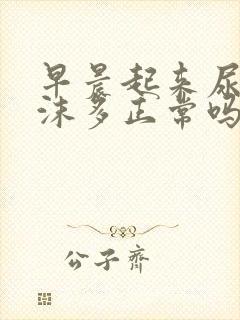 早晨起来尿
沫多正常吗
公子齐